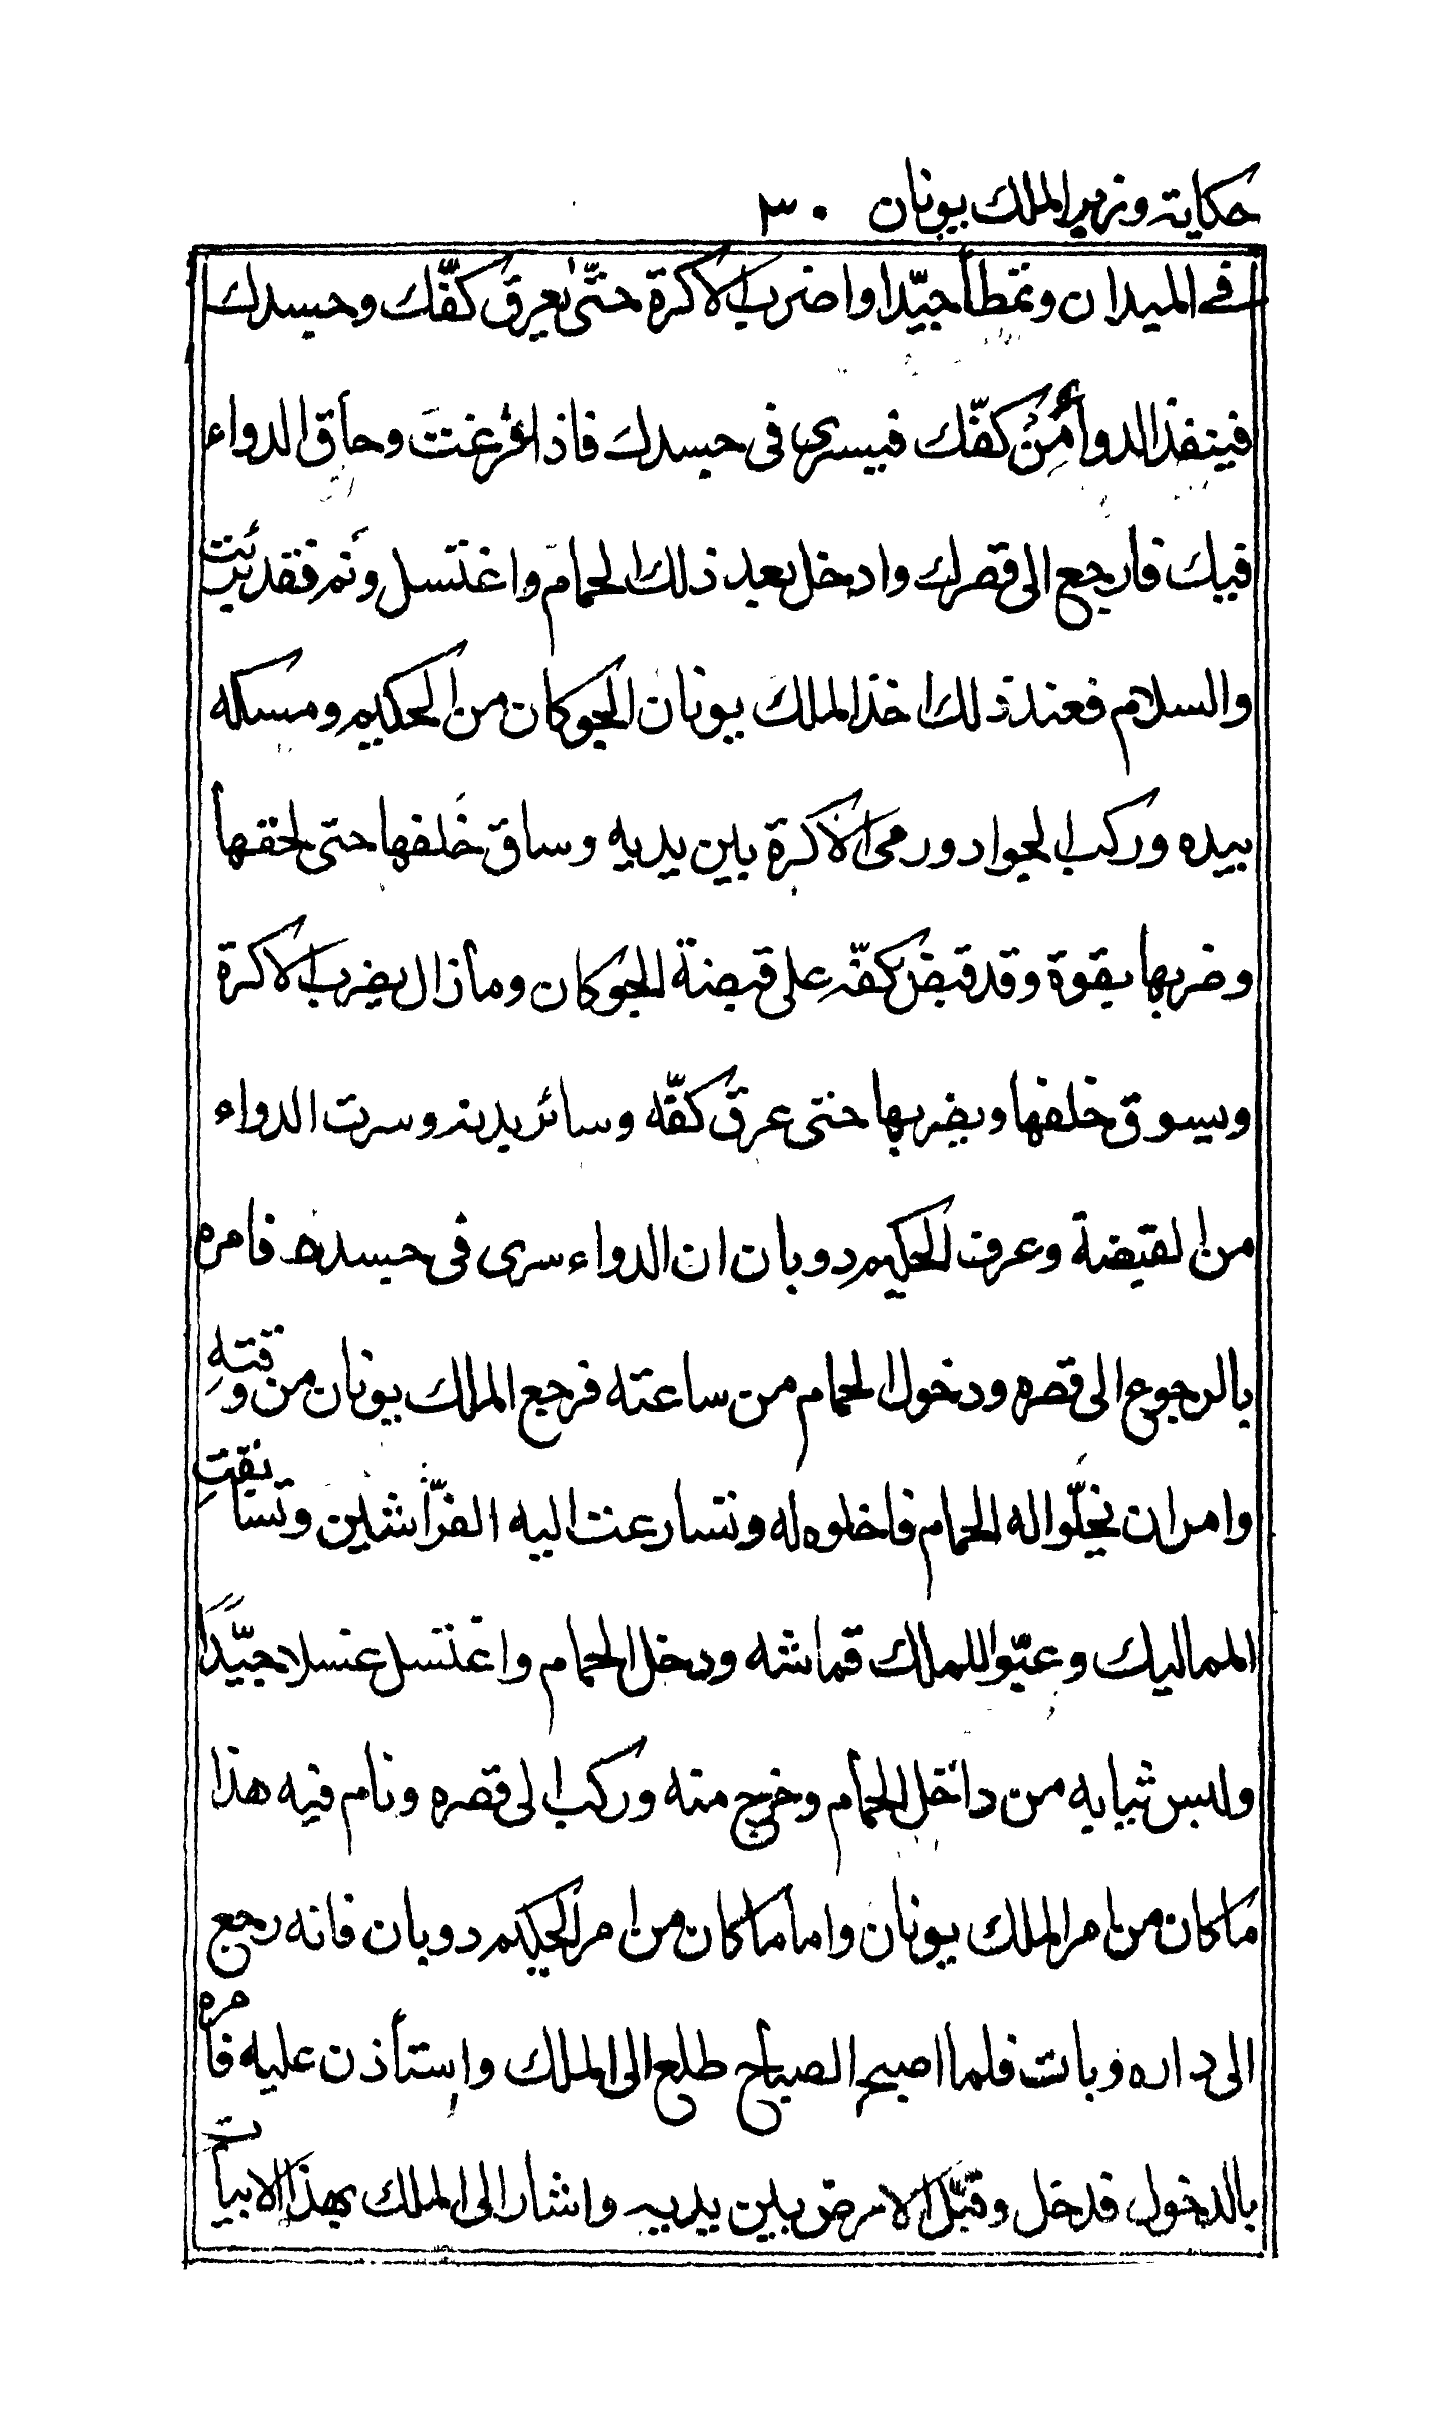 حكاية وزير الملك يونان ٣٠
في الميدان وتمطأ جيّدا واضرب الاكرة حتّى يعرق كفّك وجسدك
فينفذ الدواء من كفّك فيسرى فى جسدك فاذا فرغت وحاق الدواء
فيك فارجع الى قصرك وادخل بعد ذلك الحمام واغتسل ونم فقد بريت
والسلام فعند ذلك اخذ الملك يونان الجوكان من الحكيم ومسكه
بيده وركب الجواد ورمى الاكرة بين يديه وساق خلفها حتى لحقها
وضربها بقوة وقد قبض بكفّه على قبضة الجوكان ومازال يضرب الاكرة
ويسوق خلفها ويضربها حتى عرق كفّه وسائر بدنه وسرت الدواء
من القبضة وعرف الحكيم دوبان ان الدواء سرى فى جسده فامره
بالرجوع الى قصره ودخول الحمام من ساعته فرجع الملك يونان من وقته
وامر ان يخلّوا له الحمام فاخلوه له وتسارعت اليه الفرّاشين وتسابقت
المماليك وعبّوا للملك قماشه ودخل الحمام واغتسل غسلا جيّدًا
ولبس ثيابه من داخل الحمام وخرج منه وركب الى قصره ونام فيه هذا
ما كان من امر الملك يونان واما ما كان من امر الحكيم دوبان فانه رجع
الى داره وبات فلما اصبح الصباح طلع الى الملك واستأذن عليه فامره
بالدخول فدخل وقبّل الارض بين يديه واشار الى الملك بهذا الابيات